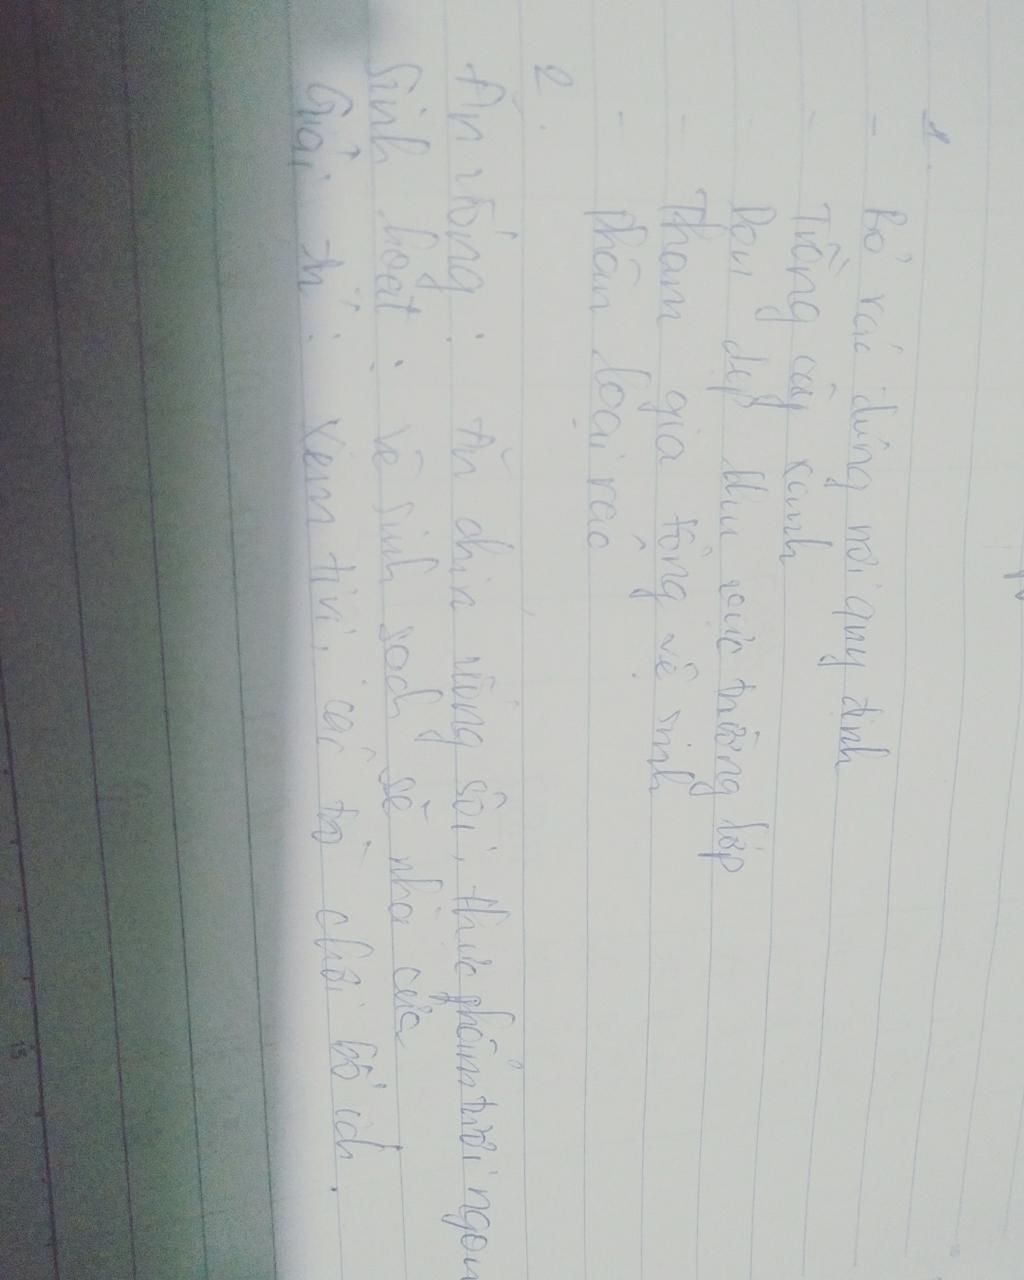 1.
- Bỏ rác đúng nơi quy định
- Trồng cây xanh
- Dọn dẹp khu vực trường lớp
- Tham gia tổng vệ sinh
- Phân loại rác
2.
Ăn uống : Ăn chín uống sôi, thực phẩm tươi ngon
Sinh hoạt : vệ sinh sạch sẽ nhà cửa
Giải trí : Xem tivi, các trò chơi bổ ích.
15